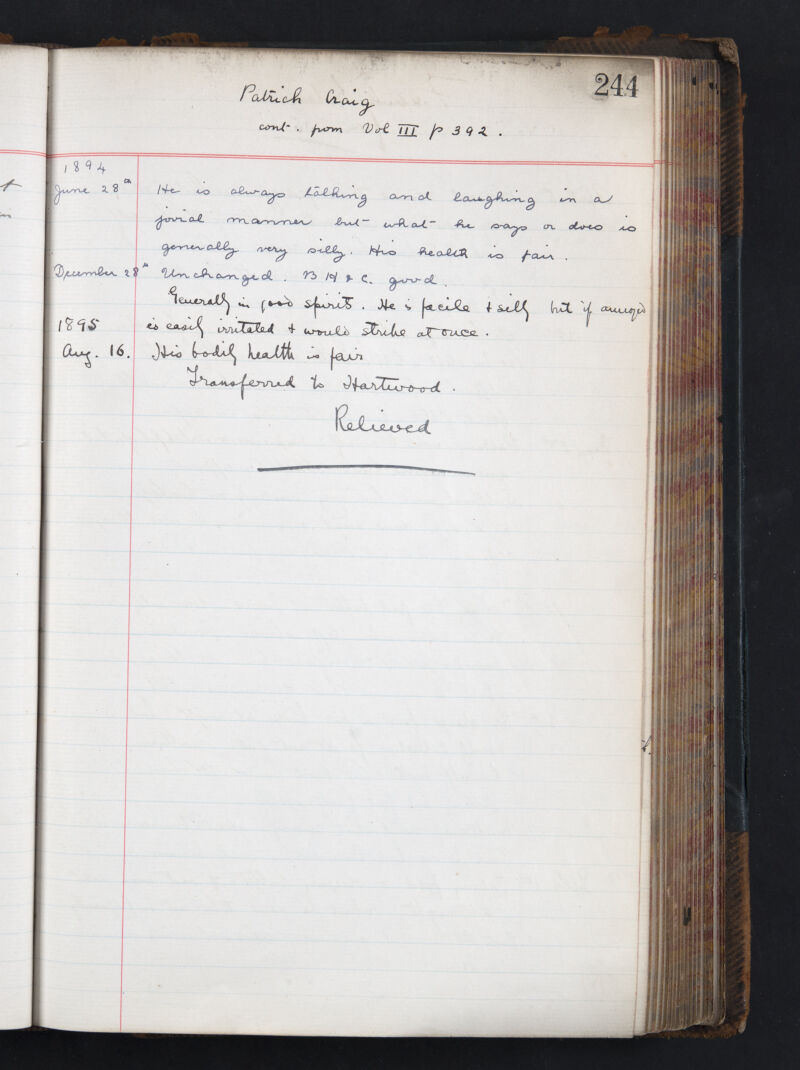 244
Patrick Craig
cont. from Vol III p 392.
1894
June 28th He is always talking and laughing in a
jovial manner but what he says or does is
generally very silly. His health is fair.
December 28th Unchanged. B H & C. good.
Generally in good spirits. He is facile & silly but if annoyed
1895 is easily irritated & would strike at once.
Aug. 16. His bodily health is fair
Transferred to Hartwood.
Relieved